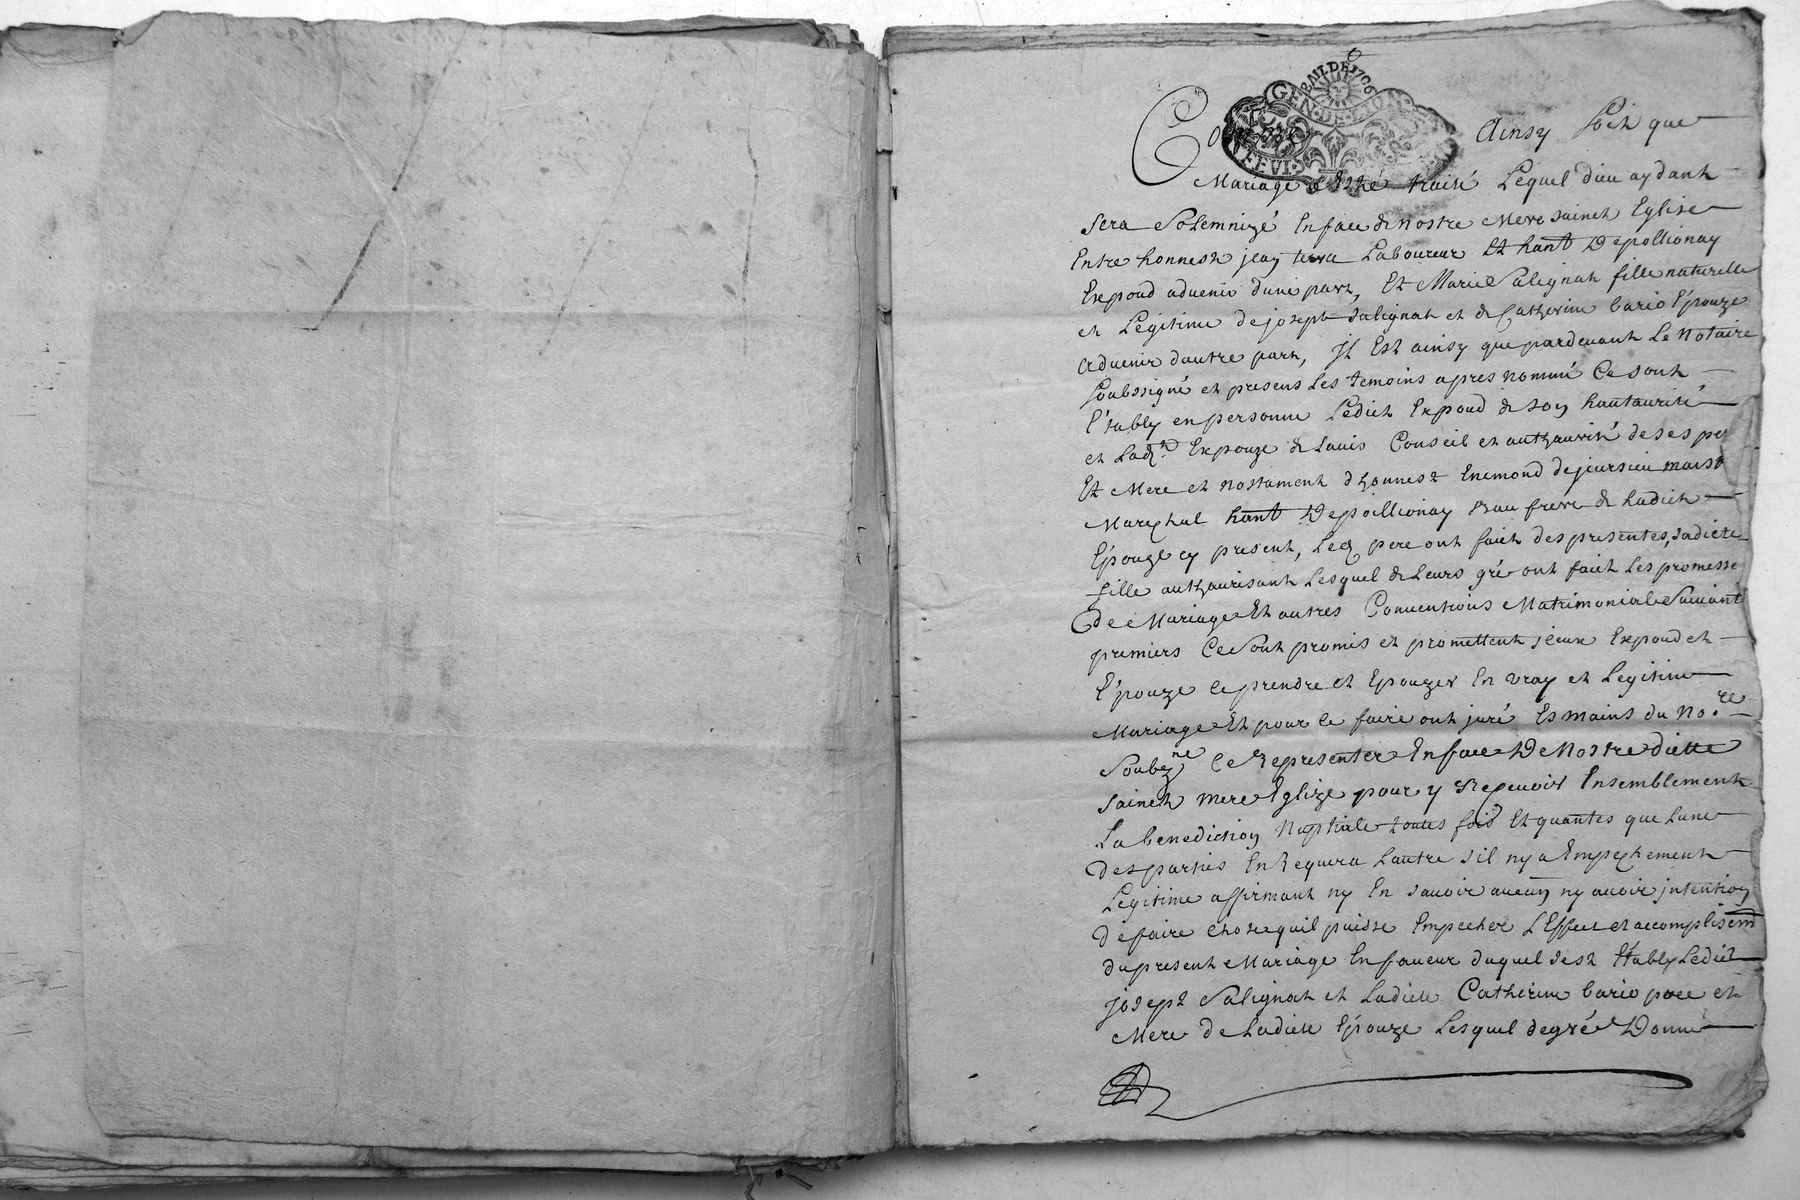 BAIL DE 1706
GEN DE LION
Comme Ainsy soit que
Mariage a Esté traité Lequel dieu aydant
sera solemnizé En face de nostre Mere saincte Eglise
Entre honneste jean terra Laboureur Et hant De pollionay
Expoud aduenir dune part, Et Marie Salignat fille naturelle
et Legitime de joseph Salignat et de Catherine bario Épouze
aduenir dautre part, Il Est ainsy que pardeuant Le Notaire
soubssigné et presens Les temoins apres nommé Ce sont
Étably en personne Ledict Expoud de son hautaurité
et Lad.te Expouze de Lauis Conseil et authaurité de ses per
Et Mere et nostament dhonnest Enemond de jeursieu maist
Marexhal hant De poillionay Beau frere de Ladicte
Épouze cy present, Led pere ont faict des presentes, sadicte
fille authaurisant Lesquel de Leurs gré ont faict Les promesse
de Mariage Et autres Conuentions Matrimoniale Suiuant
premiers Ce sont promis et promettent jceux Expoud et
Épouze ce prendre et Epouzer En vray et Legitime
Mariage Et pour ce faire ont juré Es mains du No.re
Soubz.né Ce Representer En face De Nostre dicte
saincte mere Eglize pour y Repeuoir Ensemblement
La benediction Nuptiale toutes fois Et quantes que Lune
des parties En Requera Lautre sil ny a Empexhement
Legitime affirmant ny En sauoir aucun ny auoir jntention
de faire chose quil puisse Empecher LEffect et accomplisem
du present Mariage En faueur duquel sest Étably Ledict
joseph Salignat et Ladicte Catherine bario pere et
Mere de Ladicte Épouze Lesquel de gré Donne